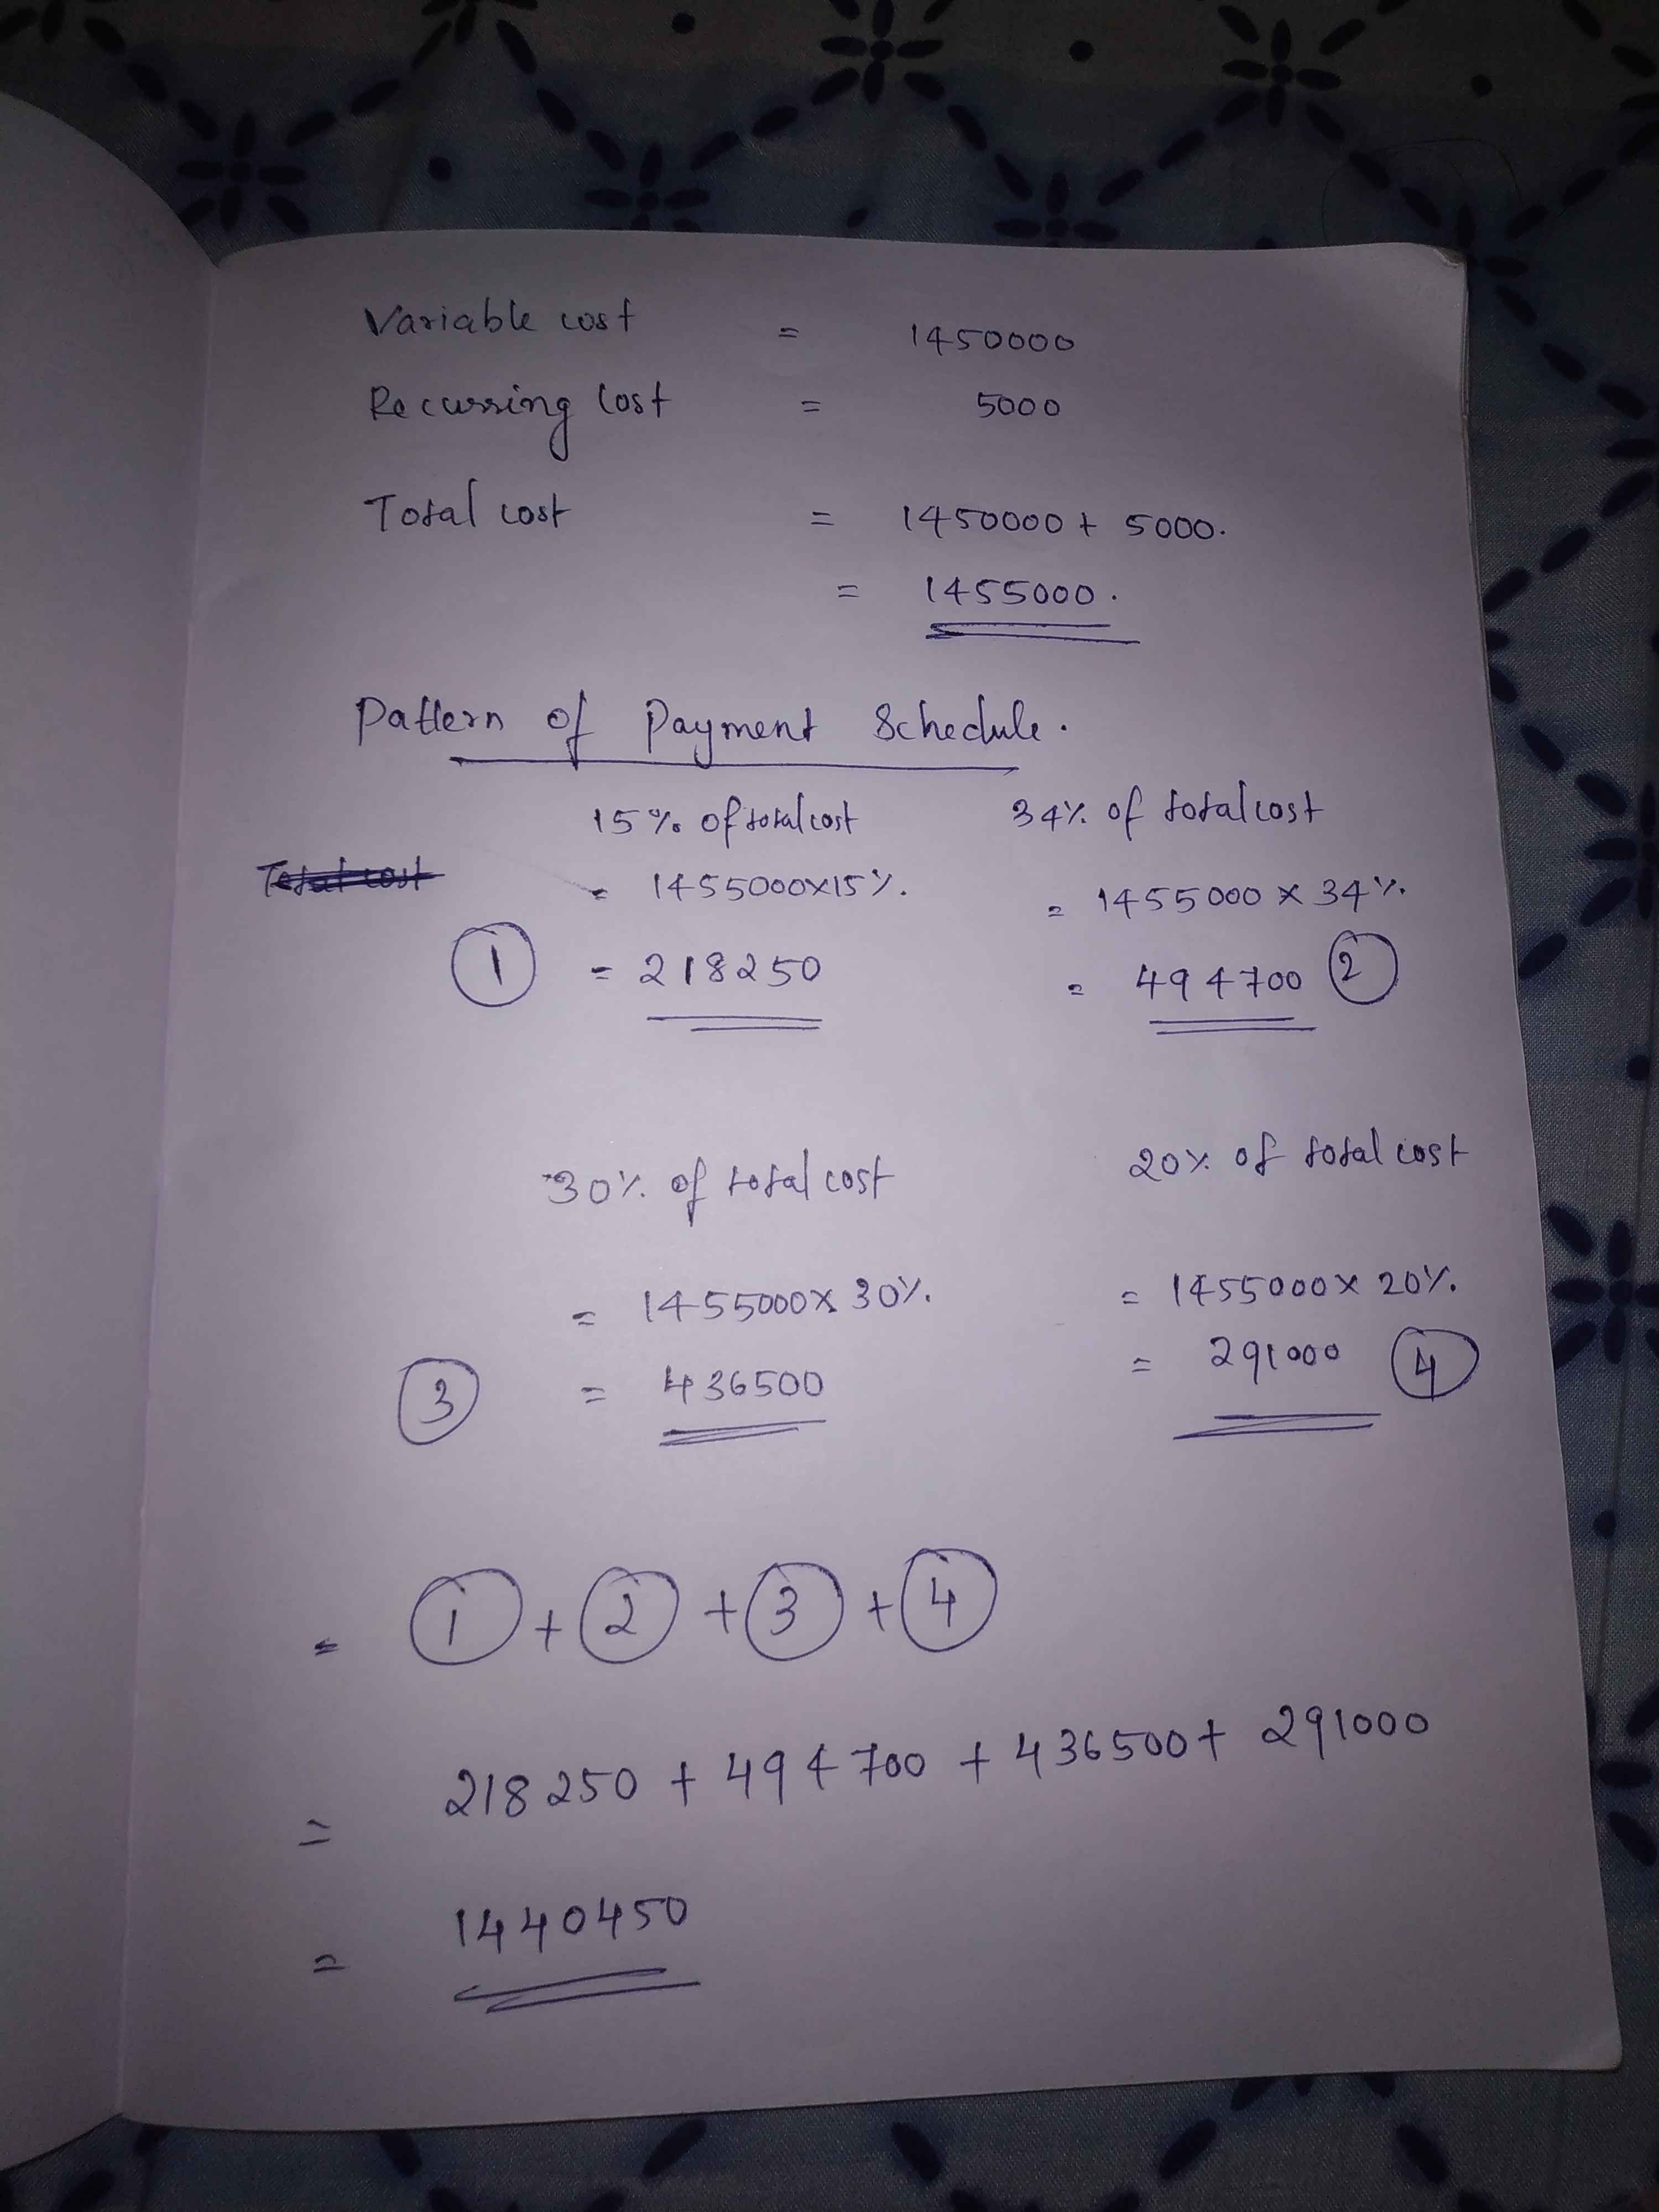 Variable cost = 1450000
Recurring Cost = 5000
Total cost = 1450000 + 5000.
= 1455000.
Pattern of Payment Schedule.
15% of total cost
34% of total cost
Total cost
= 1455000x15%.
= 1455000 x 34%.
1 = 218250
= 494700 2
30% of total cost
20% of total cost
= 1455000x 30%.
= 1455000x 20%.
3 = 436500
= 291000 4
= 1 + 2 + 3 + 4
= 218250 + 494700 + 436500 + 291000
= 1440450